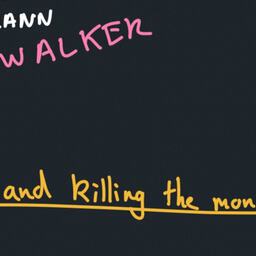 ANN
WALKER
and killing the mon